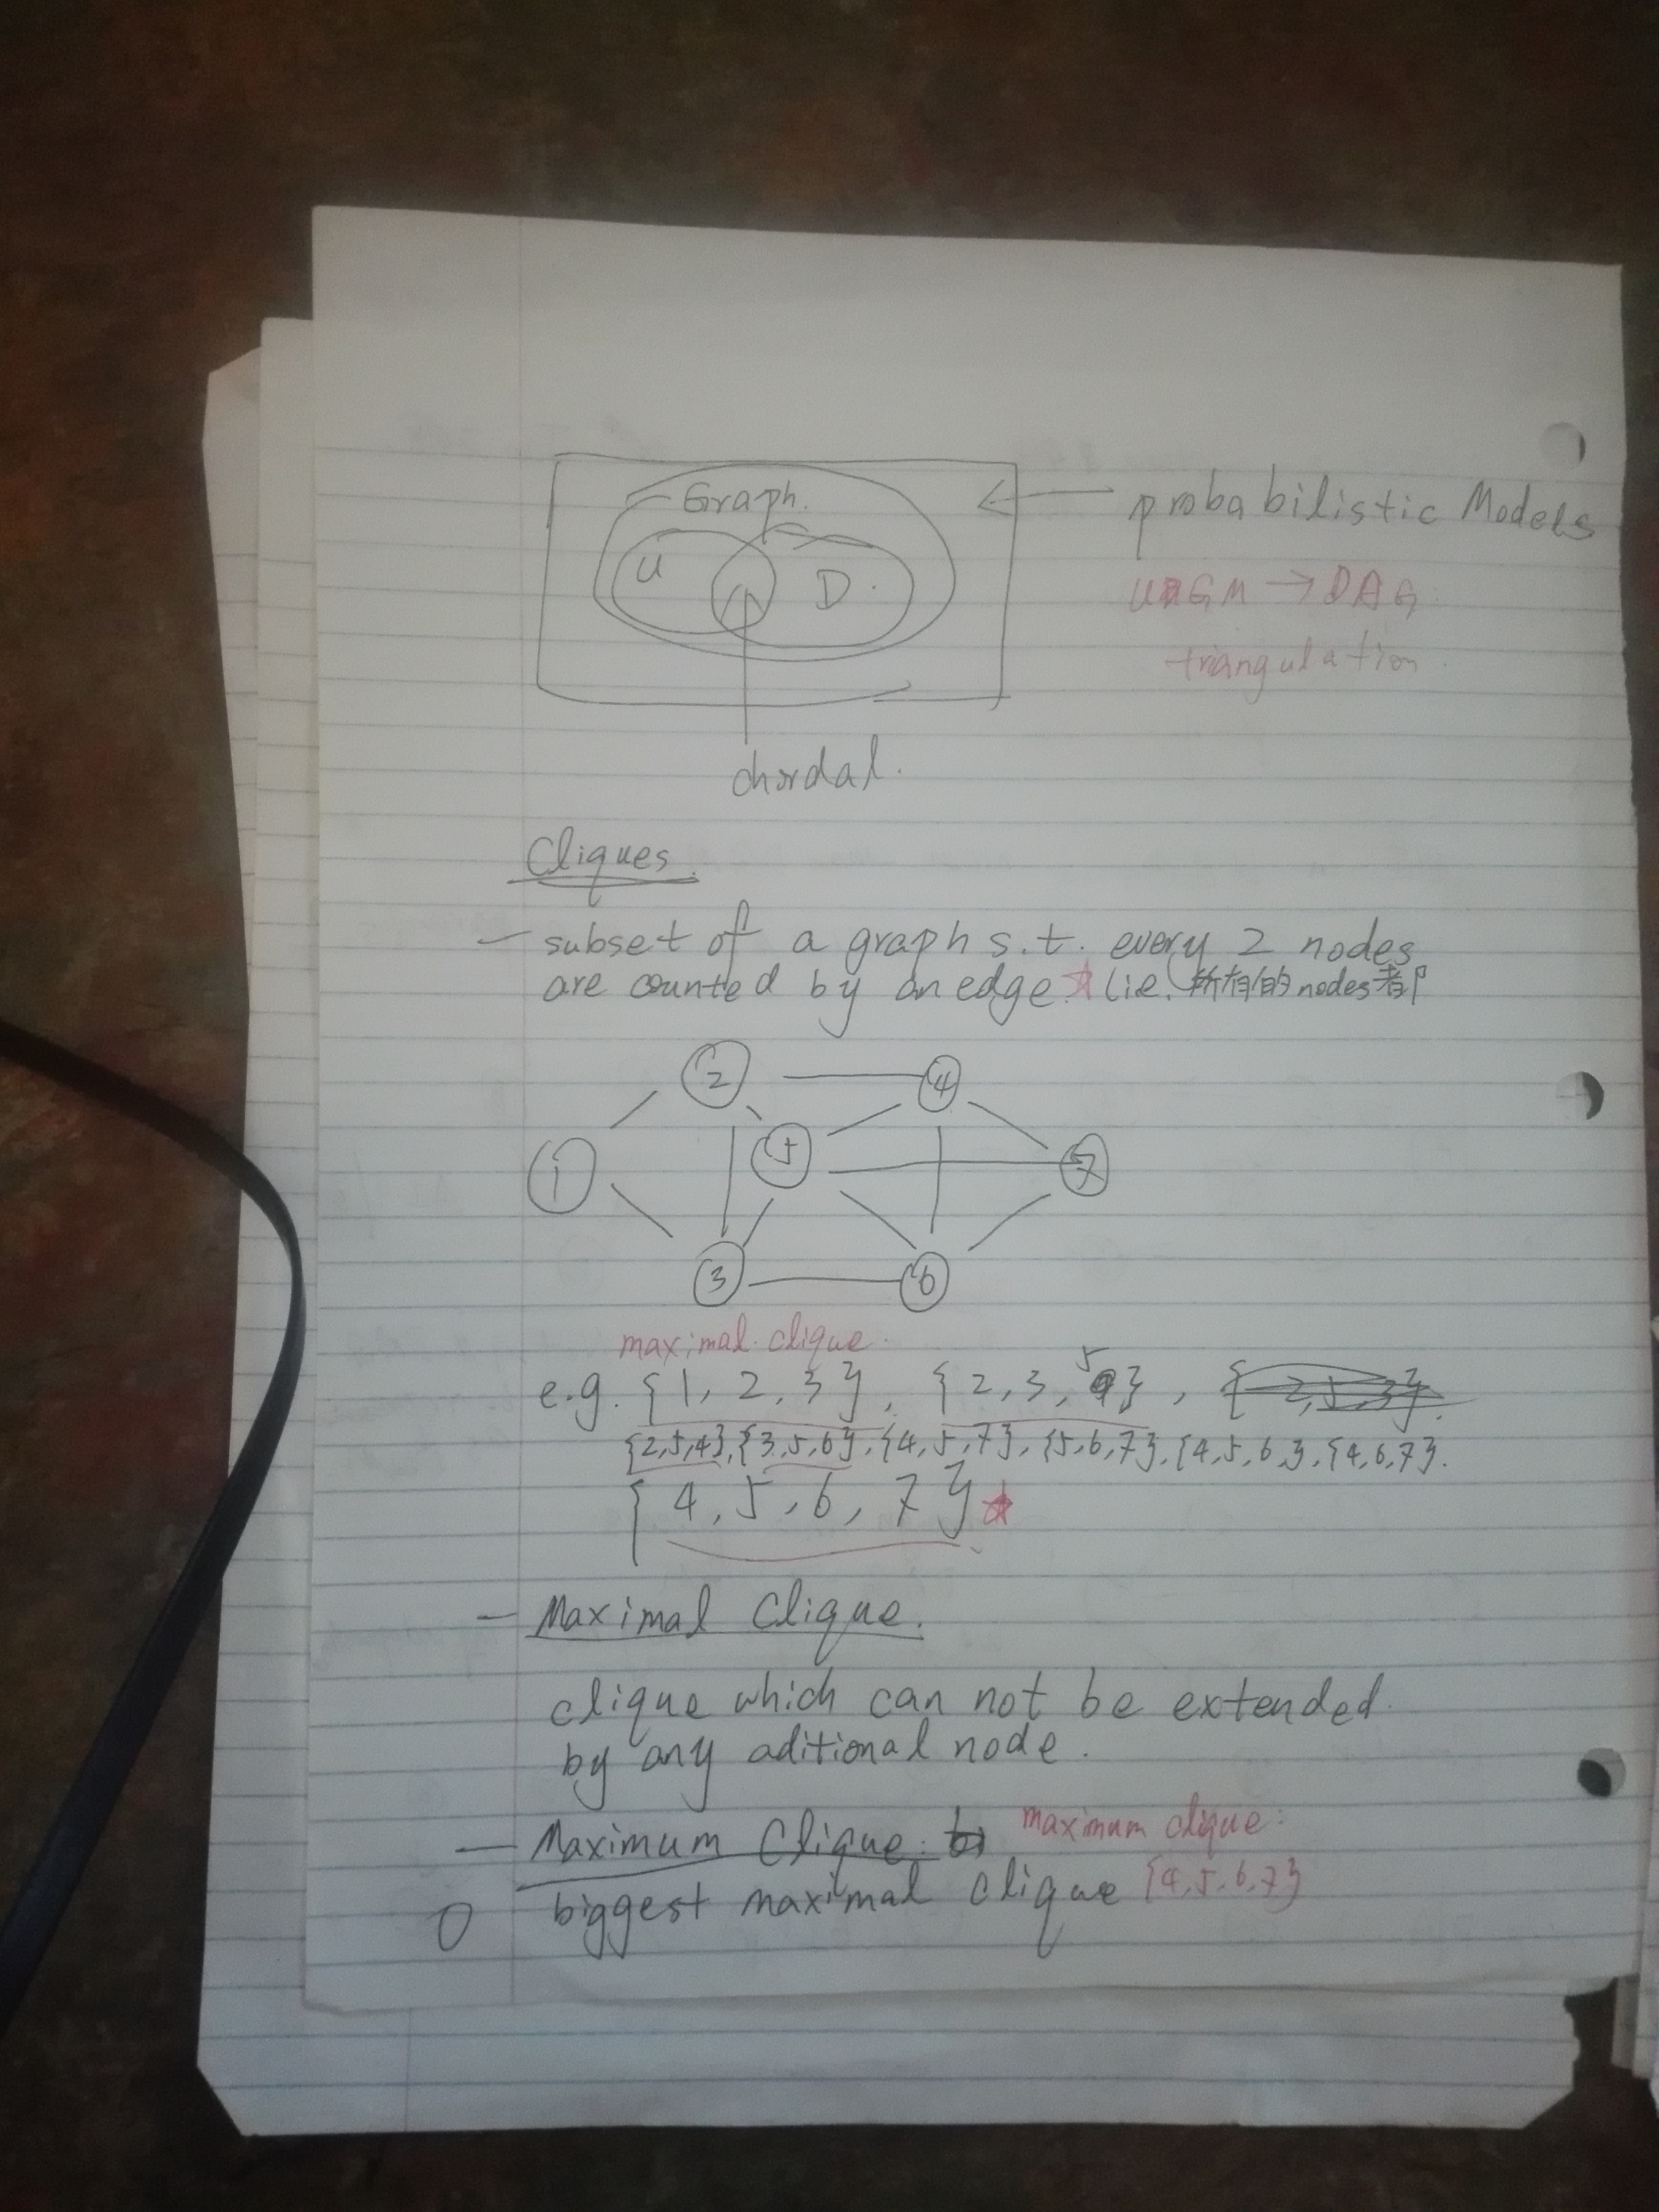 Graph.
U
D.
probabilistic Models
UGM → DAG
triangulation.
chordal.
Cliques.
– subset of a graph s.t. every 2 nodes
are counted by an edge. ☆ (i.e. 所有的nodes都
2
4
1
5
7
3
6
maximal clique.
e.g. {1, 2, 3}, {2, 3, 5}, {2, 5, 3}.
{2,5,4}, {3,5,6}, {4,5,7}, {5,6,7}, {4,5,6}, {4,6,7}.
{4, 5, 6, 7} ☆
– Maximal Clique.
clique which can not be extended.
by any aditional node.
– Maximum Clique: maximum clique:
biggest maximal clique {4,5,6,7}